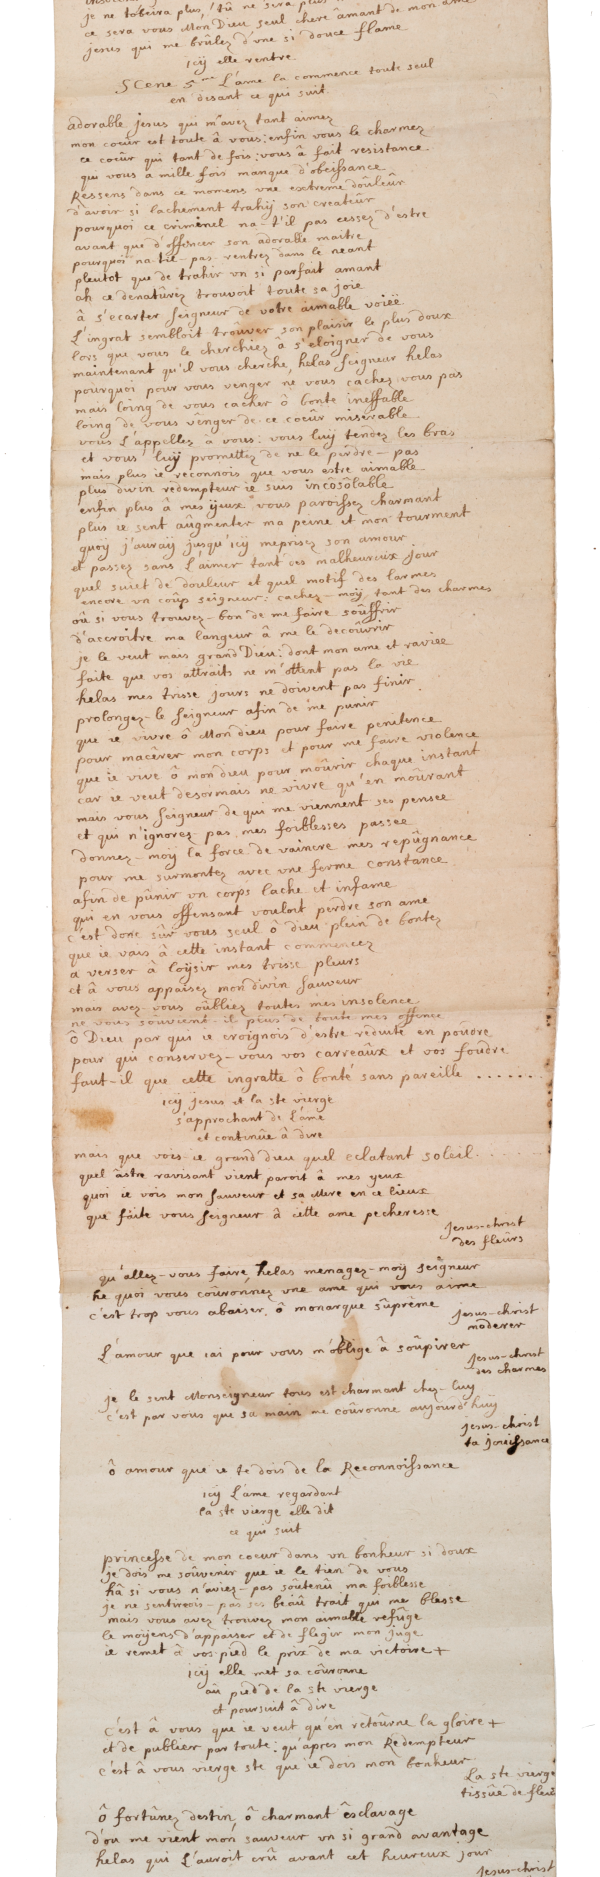 je ne tobeira plus, tû ne sera plus
ce sera vous Mon Dieu seul chere amant de mon ame
jesus qui me brûlez d'vne si douce flame
icÿ elle rentre
SCene 5me L'ame la commence toute seul
en disant ce qui suit
adorable jesus qui m'avez tant aimez
mon coeur est toute â vous; enfin vous le charmez
ce coeur qui tant de fois; vous â fait resistance.
qui vous a mille fois manque d'obeissance
Ressens dans ce momens vne extreme doûleûr
d'avoir si lachement trahÿ son createûr
pourquoÿ ce criminel na-t'il pas cessez d'estre
avant que d'offencer son adorable maitre
pourquoÿ na-til-pas-rentrez dans le neant
pleutot que de trahir vn si parfait amant
ah ce denaturez trouvoit toute sa joie
â s'ecarter seigneur de votre aimable voiië
L'ingrat sembloit troûver son plaisir le plus doux
lors que vous le cherchiez â s'eloigner de vous
maintenant qu'il vous cherche, helas seigneur helas
poûrquoi pour vous venger ne vous cachez vous pas
mais loing de vous cacher ô bonte ineffable
loing de vous vênger de ce coeûr miserable
vous L'appellez à vous: vous luÿ tendez les bras
et vous luÿ promettez de ne le pêrdre-pas
mais plus ie reconnois que vous estre aimable
plus divin redempteur ie suis incôsôlable
enfin plus â mes ÿeux vous paroissez charmant
plus ie sent aûgmenter ma peine et mon tourment
quoÿ j'auraÿ jusqu'icÿ meprisez son amour
et passez sans L'aimer tant des malheureux jour
quel suiet de douleur et quel motif des larmes
encore vn coûp seigneur: cachez-moÿ tant des charmes
oû si vous trouvez-bon de me faire soûffrir
d'accroitre ma langeur â me le decoûvrir
je le veut mais grand Dieu: dont mon ame et raviee
faite que vos attraits ne m'ottent pas la vie
helas mes trisse jours ne doivent pas finir
prolongez-le seigneur afin de me punir
que ie vivre ô Mon dieu pour faire penitence
pour macêrer mon corps et pour me faire violence
que ie vive ô mon dieu pour moûrir chaque instant
car ie veut desormais ne vivre qu'en moûrant
mais vous seigneur de qui me viennent ses pensee
et qui n'ignorez pas mes foiblesses passee
donnez-moÿ la force de vaincre mes repûgnance
pour me surmontez avec vne ferme constance
afin de pûnir vn corps lache et infame
qui en vous offensant vouloit perdre son ame
c'est donc sûr vous seul ô dieu plein de bontez
que ie vais â cette instant commencez
a verser à loÿsir mes trisse pleurs
et â vous appaisez mon divin sauveur
mais avez-vous oûbliez toutes mes insolence
ne vous souvient-il plus de toute mes offence
Ô Dieu par qui ie croignois d'estre rêduite en poûdre
pour qui conservez-vous vos carreaûx et vos foudre
faut-il que cette ingratte ô bonté sans pareille .......
icÿ jesus et la ste vierge
s'approchant de L'âme
et continûe â dire
mais que vois-ie grand dieu quel eclatant soleil.....
quel âstre ravisant vient paroit â mes yeux
quoi ie vois mon sauveur et sa Mere en ce lieux
que faite vous seigneur â cette ame pecheresse
Jesus-christ
des fleûrs
qu'allez-vous faire, helas menagez-moÿ seigneur
he quoi vous coûronnez vne ame qui vous aime
c'est trop vous abaiser, ô monarque sûprême
Jesus-christ
moderer
L'amour que iai pour vous m'oblige â soûpirer
Jesus-christ
des charmes
je le sent Monseigneur tous est charmant chez-luÿ
c'est par vous que sa main me coûronne aujourd'huÿ
jesus-christ
ta joüissance
ô amour que ie te dois de la Reconnoissance
icÿ L'ame regardant
la ste vierge elle dit
ce qui suit
princesse de mon coeur dans vn bonheur si doux
je dois me soûvenir que ie le tien de vous
hâ si vous n'aviez-pas soûtenû ma foiblesse
je ne sentirois-pas ses beaû trait qui me blesse
mais vous avez trouvez mon aimable refûge
le moÿens d'appaiser et de flegir mon juge
ie remet â vos-pied le prix de ma victoire +
icÿ elle met sa coûronne
aû pied de la ste vierge
et poursuit â dire
C'est â vous que ie veut qu'en retoûrne la gloire +
et de publier par toute; qu'apres mon Redempteur
c'est â vous vierge ste que ie dois mon bonheur
La ste vierge
tissûe de fleur
Ô fortûnez destin, ô charmant êsclavage
d'ou me vient mon sauveur vn si grand avantage
helas qui L'auroit crû avant cet heureux jour
jesus-christ